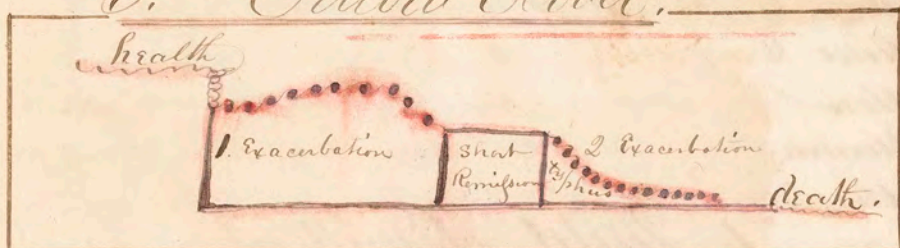 health
1. Exacerbation
Short
Remission
typhus
2 Exacerbation
death.